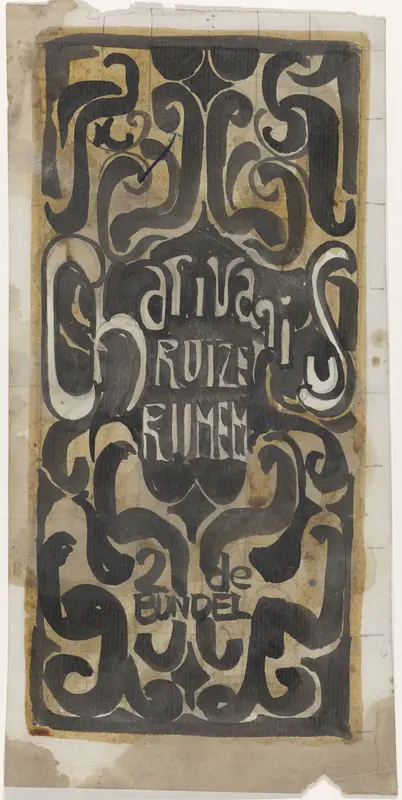 Charivarius
RUIZE
RIJMEN
2 de
BUNDEL